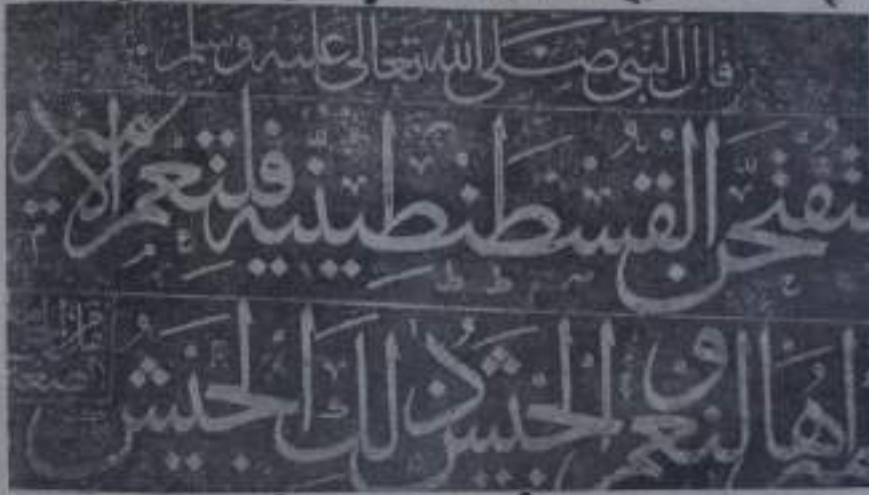 قال النبي صلى الله تعالى عليه وسلم
لتفتحن القسطنطينيه فلنعم الامير
اميرها ولنعم الجيش ذلك الجيش